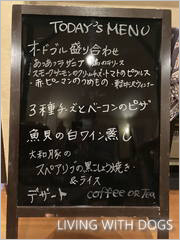 TODAY'S MENU
オードブル盛り合わせ
スモークサーモンのクリームチーズ・トマトのピクルス
赤ピーマンのうめもの
3種チーズとベーコンのピザ
魚貝の白ワイン蒸し
大和豚の
スペアリブの黒こしょう焼き
&ライス
デザート coffee OR TEA
LIVING WITH DOGS